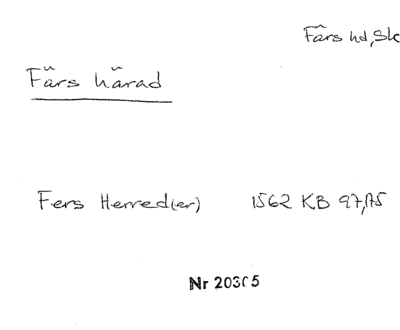 Färs hd, Sk
Färs härad
Fers Herred(er) 1562 KB 97,175
Nr 20305